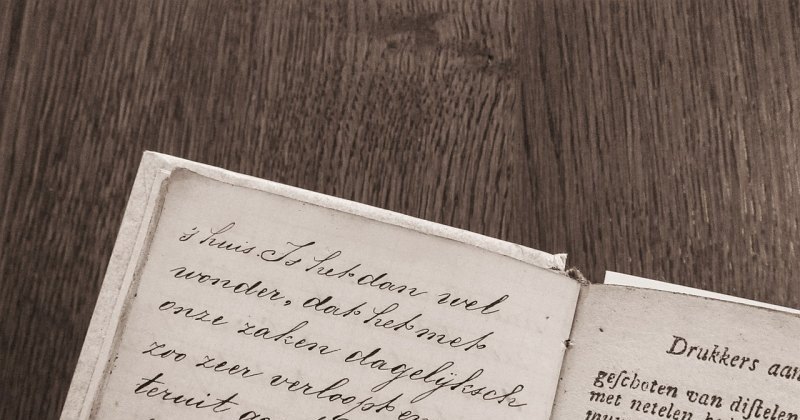 's huis. Is het dan wel
wonder, dat het met
onze zaken dagelijksch
zoo zeer verloopt en
teruit
Drukkers aan
geſchoten van diſtelen
met netelen